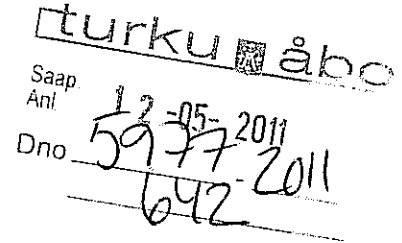 turku åbo
Saap.
Anl. 12 -05- 2011
Dno 5977-2011
642